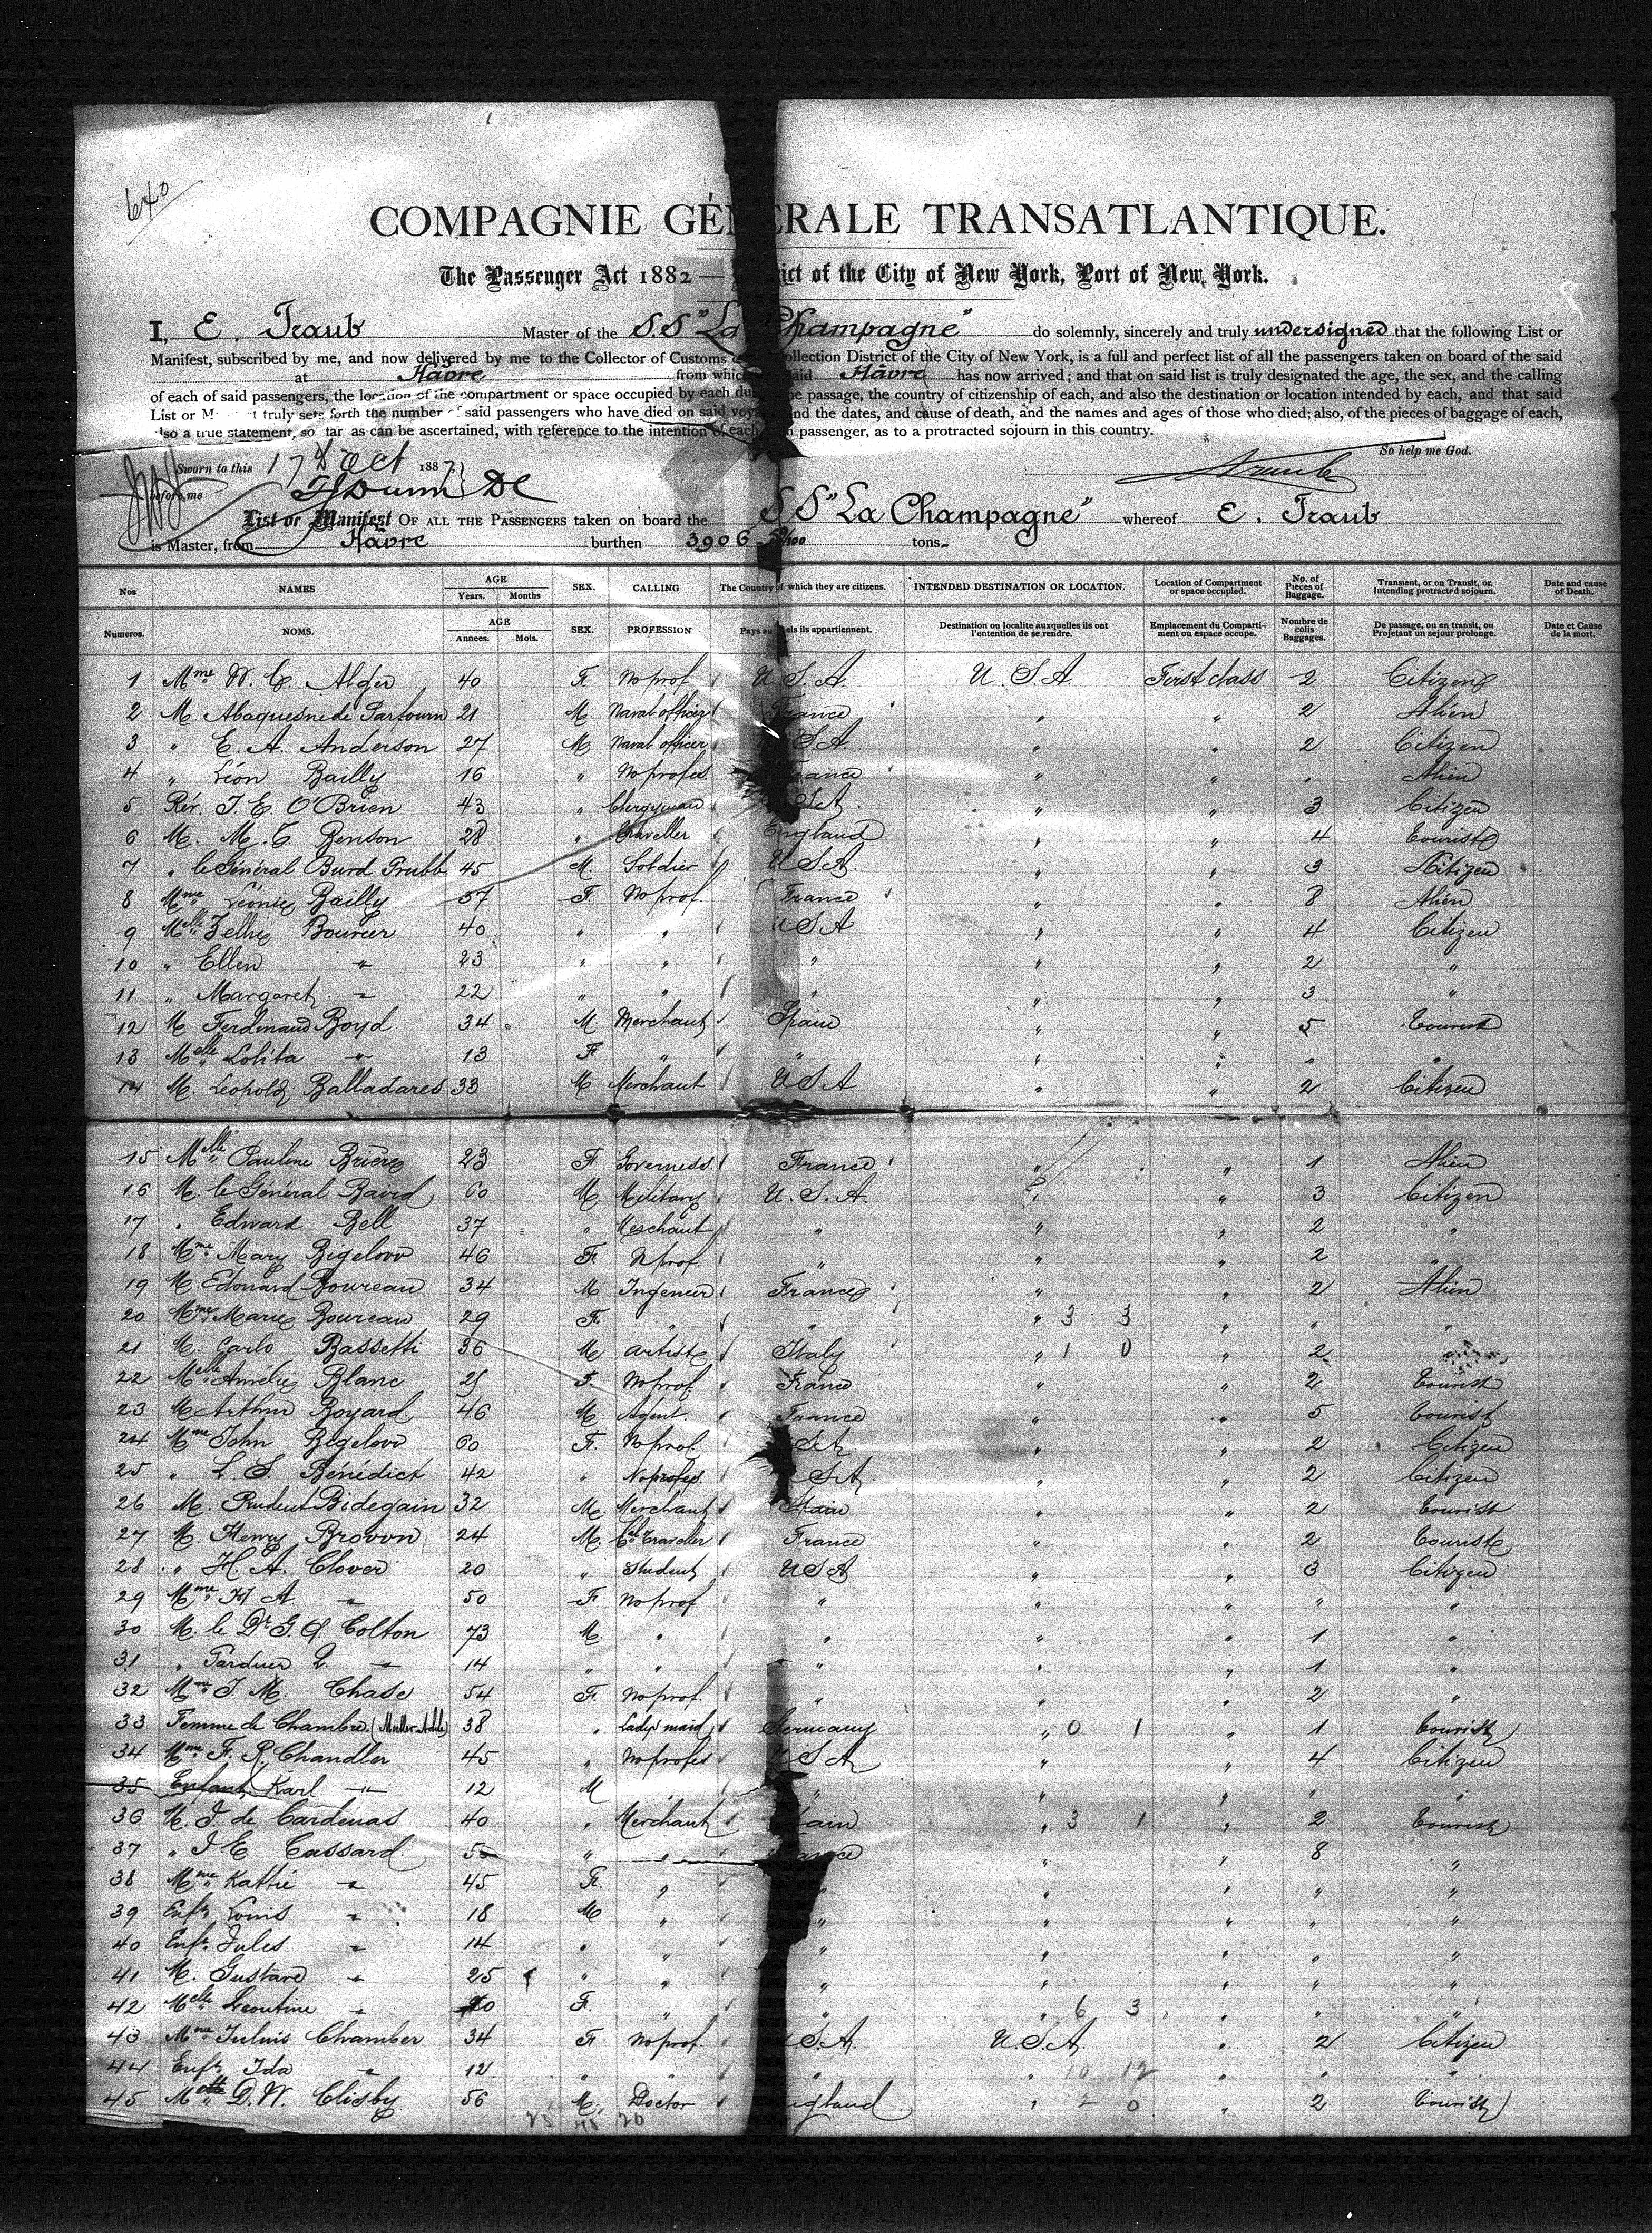 640
COMPAGNIE GÉNERALE TRANSATLANTIQUE.
The Passenger Act 1882 — ict of the City of New York, Port of New York.
I, E. Traub Master of the S.S "La Champagne" do solemnly, sincerely and truly undersigned that the following List or
Manifest, subscribed by me, and now delivered by me to the Collector of Customs ollection District of the City of New York, is a full and perfect list of all the passengers taken on board of the said
at Hâvre from which said Hâvre has now arrived; and that on said list is truly designated the age, the sex, and the calling
of each of said passengers, the location of the compartment or space occupied by each du he passage, the country of citizenship of each, and also the destination or location intended by each, and that said
List or M t truly sets forth the number of said passengers who have died on said voy nd the dates, and cause of death, and the names and ages of those who died; also, of the pieces of baggage of each,
also a true statement, so far as can be ascertained, with reference to the intention of each passenger, as to a protracted sojourn in this country.
So help me God.
Sworn to this 17 Oct 1887
before me
Traub
List or Manifest OF ALL THE PASSENGERS taken on board the S S "La Champagne" whereof E. Traub
is Master, from Hâvre burthen 3906 tons
Nos NAMES AGE Years. Months SEX. CALLING The Country of which they are citizens. INTENDED DESTINATION OR LOCATION. Location of Compartment or space occupied. No. of Pieces of Baggage. Transient, or on Transit, or, Intending protracted sojourn. Date and cause of Death.
Numeros. NOMS. AGE Annees. Mois. SEX. PROFESSION Pays au els ils appartiennent. Destination ou localite auxquelles ils ont l'entention de se rendre. Emplacement du Comparti- ment ou espace occupe. Nombre de colis Baggages. De passage, ou en transit, ou Projetant un sejour prolonge. Date et Cause de la mort.
1 Mme W. C. Alger 40 F. No prof U.S.A. U.S.A. First class 2 Citizen
2 M. Abaquesne de Parfouru 21 M. Naval officer France " " 2 Alien
3 " E. A. Anderson 27 M. Naval officer S.A. " " 2 Citizen
4 " Léon Bailly 16 " No profes. ance " " " Alien
5 Rev. T. E. O'Brien 43 " Clergyman S.A. " " 3 Citizen
6 M. M. C. Benson 28 " Traveller England " " 4 Tourist
7 " le Général Burd Grubb 45 M. Soldier U.S.A. " " 3 Citizen
8 Mme Léonie Bailly 37 F. No prof. France " " 8 Alien
9 Melle Zellie Bouvier 40 " " U.S.A " " 4 Citizen
10 " Ellen " 23 " " " " " 2 "
11 " Margaret " 22 " " " " " 3 "
12 M Ferdinand Boyd 34 M Merchant Spain " " 5 Tourist
13 Melle Lolita " 13 F. " " " " " "
14 M. Leopold Balladares 33 M Merchant U.S.A " " 2 Citizen
15 Melle Pauline Brière 23 F Governess France " " 1 Alien
16 M. le Général Baird 60 M. Military U.S.A. " " 3 Citizen
17 " Edward Bell 37 " Merchant " " " 2 "
18 Mme Mary Bigelow 46 F. N prof. " " " 2 "
19 M. Edouard Boureau 34 M Ingeneer France " " 2 Alien
20 Mme Marie Boureau 29 F. " " " 3 3 " " "
21 M. Carlo Bassetti 36 M artiste Italy " 1 0 " 2 "
22 Melle Amélie Blanc 25 F. No prof. France " " 2 Tourist
23 M Arthur Boyard 46 M. Agent France " " 5 Tourist
24 Mme John Bigelow 60 F. No prof S.A. " " 2 Citizen
25 " L. S. Bénédict 42 " No profes. S.A. " " 2 Citizen
26 M. Prudent Bidegain 32 M. Merchant Spain " " 2 Tourist
27 M. Henry Brown 24 M. Cal Traveller France " " 2 Tourist
28 " H. A. Clover 20 " Student U.S.A " " 3 Citizen
29 Mme H A " 50 F No prof " " " " "
30 M. le Dr G. Q. Colton 73 M. " " " " 1 "
31 " Gardner Q. " 14 " " " " " 1 "
32 Mme J. M. Chase 54 F. No prof. " " " 2 "
33 Femme de Chambre (Muller Adèle) 38 " Lady's maid Germany " 0 1 " 1 Tourist
34 Mme F. R. Chandler 45 " No profes U.S.A " " 4 Citizen
35 Enfant Karl " 12 M " " " " " "
36 M. J. de Cardenas 40 " Merchant Spain " 3 1 " 2 Tourist
37 " J. E. Cassard 50 " " ance " " 8 "
38 Mme Kattie " 45 F. " " " " " "
39 Enft Louis " 18 M " " " " " "
40 Enft Jules " 14 " " " " " " "
41 M. Gustave " 25 " " " " " " "
42 Melle Leontine " 20 F. " " " 6 3 " " "
43 Mme Julius Chamber 34 F No prof. U.S.A. U.S.A. " 2 Citizen
44 Enft Ida " 12 " " " " 10 12 " " "
45 M D. W. Clisby 56 M. Doctor England " 2 0 " 2 Tourist